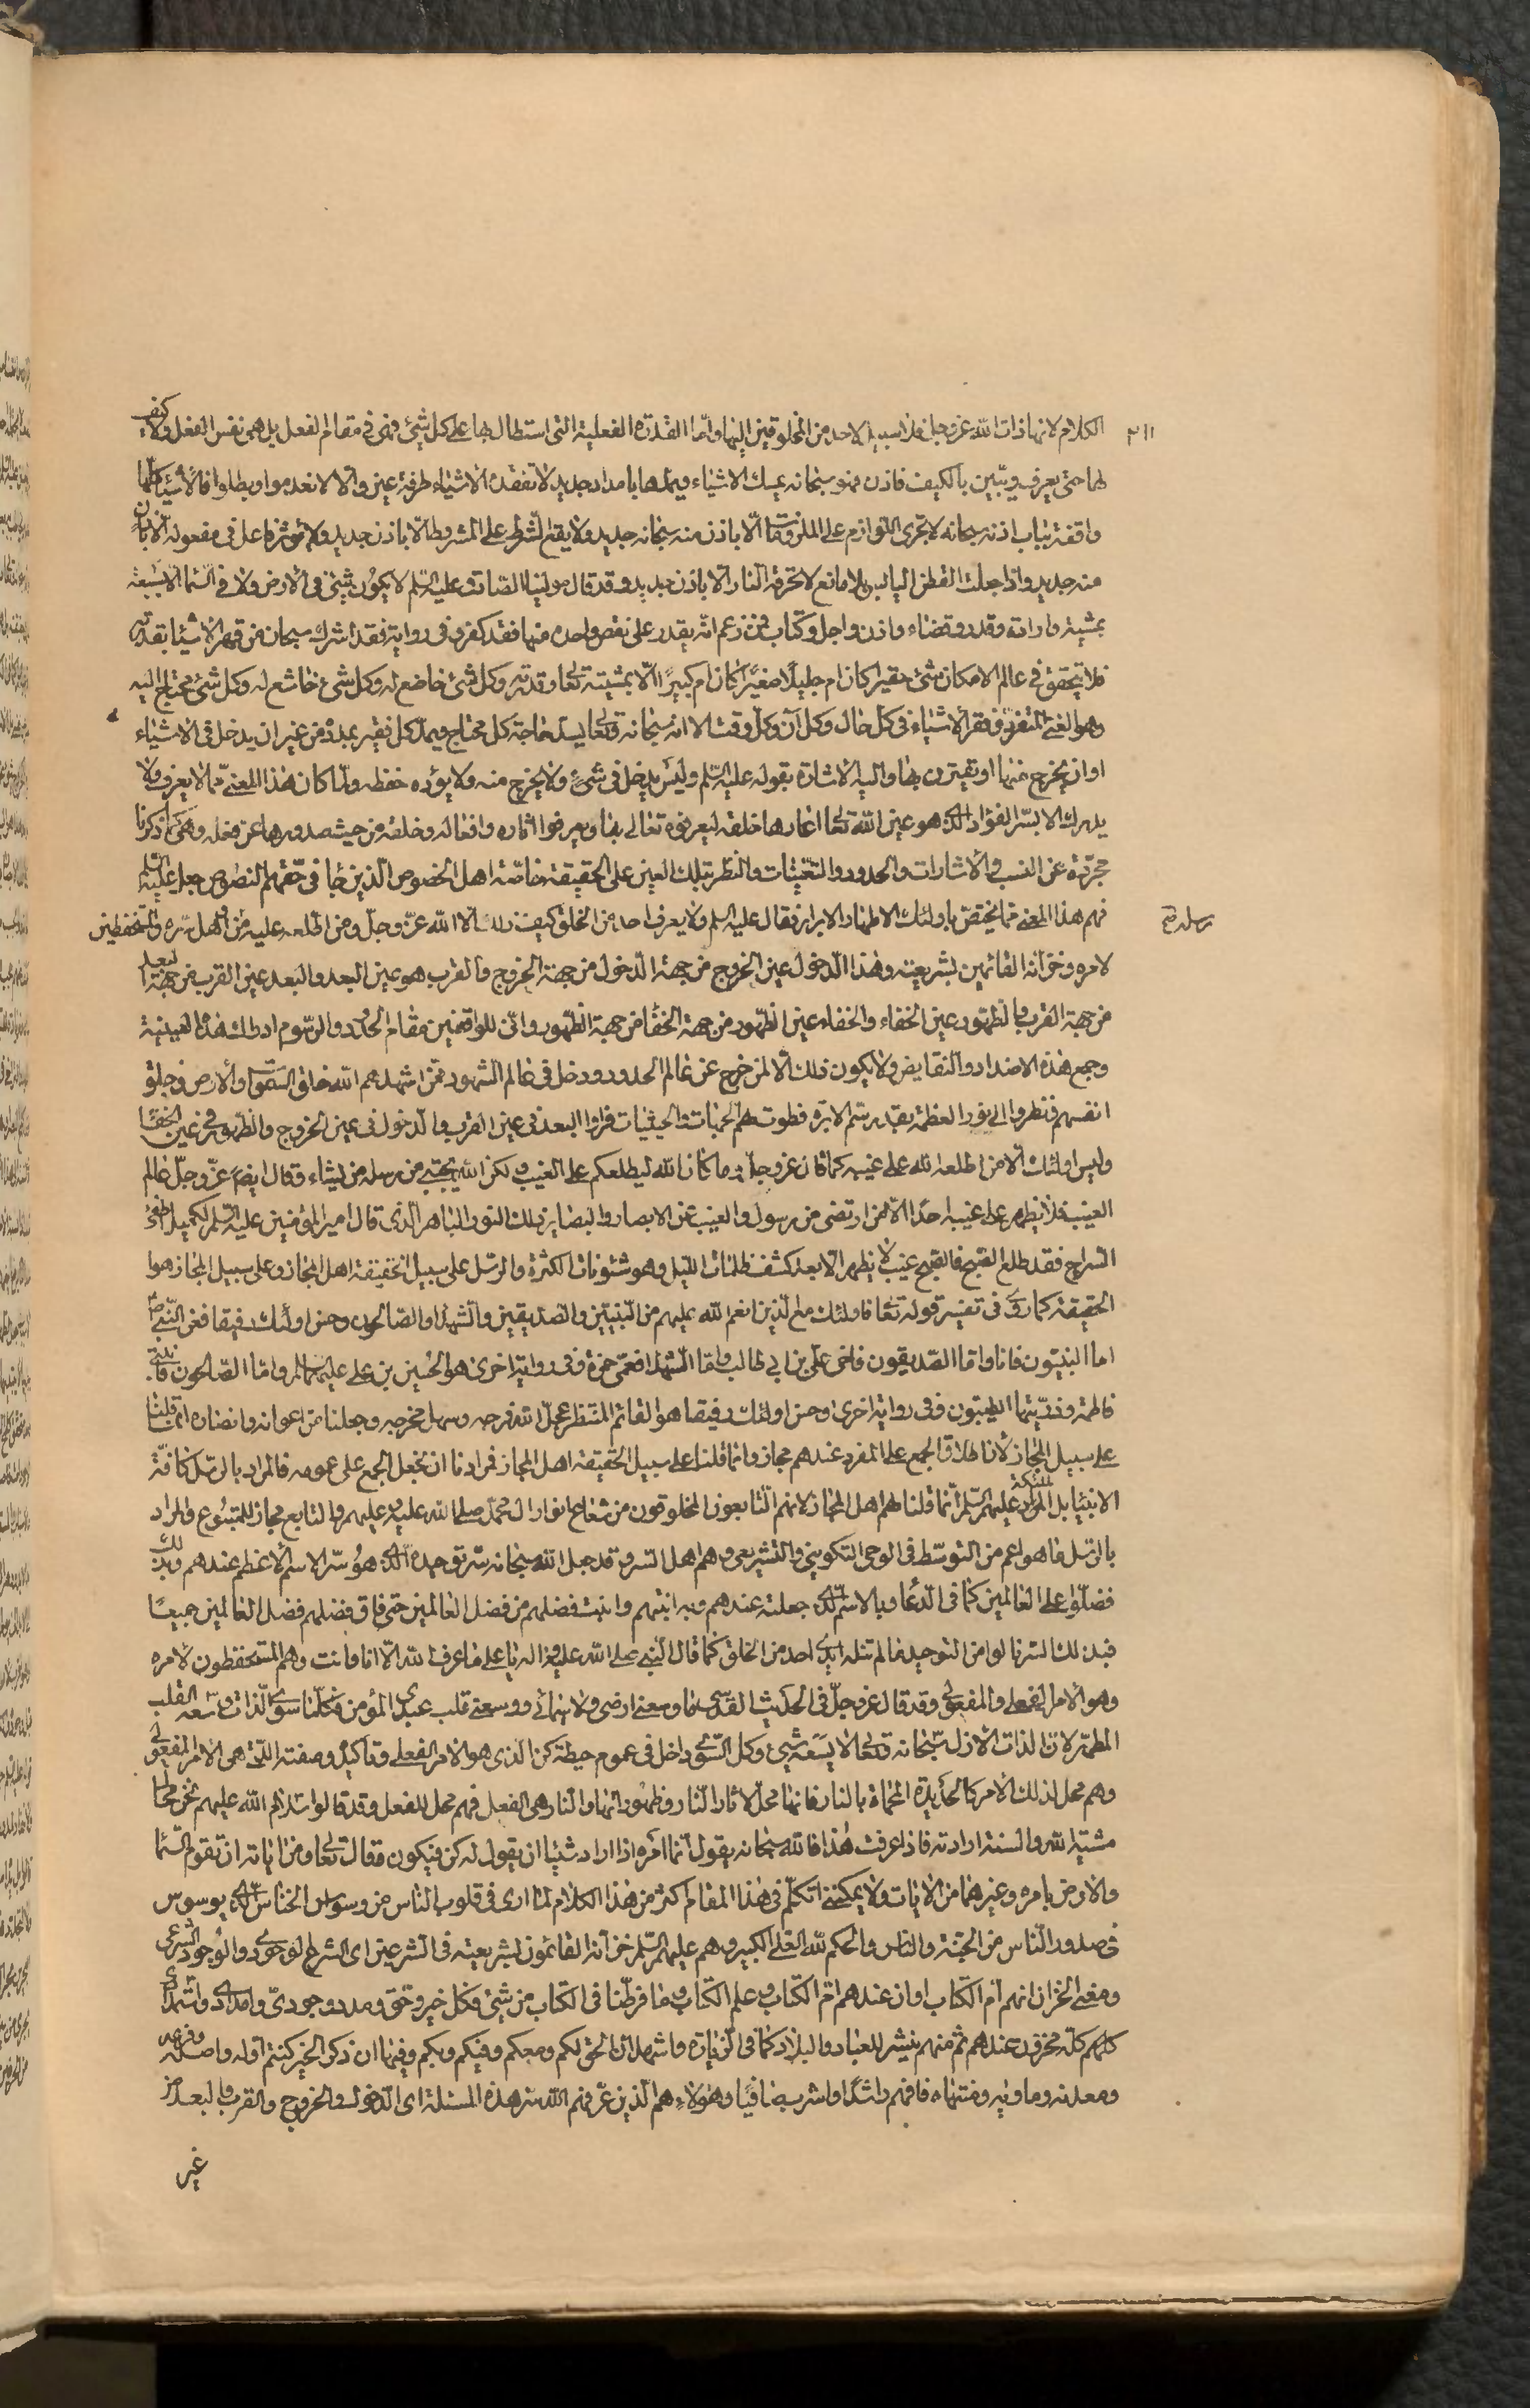 ٣١١
الكلام لانها ذات الله عز وجل فلا سبيل لاحد من المخلوقين اليها واما القدرة الفعلية التى استطال بها على كل شئ فهى فى مقام الفعل بل هى نفس الفعل ولا كيف
لها حتى يعرف ويتبين بالكيف فاذن فهو سبحانه يمسك الاشياء ويمدها بامداد جديد لا تفقده الاشياء طرفة عين والا لانعدموا وبطلوا فالاشياء كلها
واقفة بباب اذنه سبحانه لا تجرى اللوازم على الملزومات الا باذن منه سبحانه جديد ولا يقع الشرط على المشروط الا باذن جديد ولا يؤثر فاعل فى مفعوله الا باذن
منه جديد واذا جعلت القطن اليابس بلا مانع لا تحرقه النار الا باذن جديد وقد قال مولينا الصادق عليه السلم لا يكون شئ فى الارض ولا فى السماء الا بسبعة
بمشية وارادة وقدر وقضاء واذن واجل وكتاب فمن زعم انه يقدر على نقص واحدة منها فقد كفر وفى رواية فقد اشرك سبحان من قهر الاشياء بقدرته
فلا يتحقق فى عالم الامكان شئ حقيرا كان ام جليلا صغيرا كان ام كبيرا الا بمشيته تعالى وقدرته وكل شئ خاضع له وكل شئ خاشع له وكل شئ محتاج اليه
وهو الغنى المتفرد ففقر الاشياء فى كل حال وكل آن وكل وقت الا انه سبحانه وتعالى يسد حاجة كل محتاج ويمد كل فقير بمدده من غير ان يدخل فى الاشياء
او ان يخرج عنها او يقترن بها واليه الاشارة بقوله عليه السلم وليس يدخل فى شئ ولا يخرج منه ولا يؤده حفظه ولما كان هذا المعنى مما لا يعرف ولا
يدرك الا بسر الفؤاد الذى هو عين الله تعالى اعارها خلقه ليعرفوه تعالى بها ويعرفوا اثاره وافعاله وخلقه من حيث صدورها عن فعله وهى كما ذكرنا
مجردة عن النسب والاشارات والحدود والتعينات والنظر بتلك العين على الحقيقة خاصة اهل الخصوص الذين جا فى حقهم النصوص جعل عليه السلم
فهم هذا المعنى مما يختص باولئك الاطهار الابرار فقال عليه السلم ولا يعرف احد من الخلق كيف ذلك الا الله عز وجل ومن اطلعه عليه من رسله واهل سره والمستحفظين
رسله صح
لامره وخزانه القائمين بشريعته وهذا الدخول عين الخروج من جهة الدخول من جهة الخروج والقرب هو عين البعد والبعد عين القرب من جهة البعد
من جهة القرب والظهور عين الخفاء والخفاء عين الظهور من جهة الخفاء من جهة الظهور وانى للواقفين مقام الحدود والرسوم ادراك هذه العينية
وجمع هذه الاضداد والنقايض ولا يكون ذلك الا لمن خرج عن عالم الحدود ودخل فى عالم الشهود فمن اشهدهم الله خلق السموات والارض وخلق
انفسهم فنظروا الى نور العظمة بقدر سم الابرة فطوت لهم الجهات والحيثيات فراوا البعد فى عين القرب والدخول فى عين الخروج والظهور فى عين الخفاء
وليس اولئك الا من اطلعه الله على غيبه كما قال عز وجل وما كان الله ليطلعكم على الغيب ولكن الله يجتبى من رسله من يشاء وقال ايضا عز وجل عالم
الغيب فلا يظهر على غيبه احدا الا لمن ارتضى من رسول والغيب عن الابصار والبصاير ذلك النور الباهر الذى قال امير المؤمنين عليه السلم لكميل اطفئ
السراج فقد طلع الصبح فالصبح غيب لا يظهر الا بعد كشف ظلمات الليل وهو شئونات الكثرة والرسل على سبيل الحقيقة اهل المجاز وعلى سبيل المجاز هو
الحقيقة كما روى فى تفسير قوله تعالى فاولئك مع الذين انعم الله عليهم من النبيين والصديقين والشهداء والصالحين وحسن اولئك رفيقا فعن النبى ص
اما النبيون فانا واما الصديقون فاخى على بن ابى طالب واما الشهداء فعمى حمزة وفى رواية اخرى هو الحسين بن على عليهما السلم واما الصالحون فابنتى
فاطمة وذريتها الطيبون وفى رواية اخرى وحسن اولئك رفيقا هو القائم المنتظر عجل الله فرجه وسهل مخرجه وجعلنا من اعوانه وانصاره انما قلنا
على سبيل المجاز لان اطلاق الجمع على المفرد عندهم مجاز وانما قلنا على سبيل الحقيقة اهل المجاز فمرادنا ان نجعل الجمع على عمومه فالمراد بالرسل كافة
الانبياء بل الملئكة عليهم السلم انما قلنا لهم اهل المجاز لانهم التابعون المخلوقون من شعاع انوار ال محمد صلى الله عليه وعليهم والتابع مجاز للمتبوع والمراد
بالرسل ما هو اعم من التوسط فى الوحى التكوينى والتشريعى وهم اهل السر وقد جعل الله سبحانه سر توحيده الذى هو سر الاسم الاعظم عندهم وبذلك
فضلوا على العالمين كما فى الدعاء وبالاسم الذى جعلته عندهم وبه ابنتهم وابنت فضلهم من فضل العالمين حتى فاق فضلهم فضل العالمين جميعا
فبذلك السر نالوا من التوحيد ما لم تنله ايدى احد من الخلق كما قال النبى صلى الله عليه واله يا على ما عرف الله الا انا وانت وهم المستحفظون لامره
وهو الامر الفعلى والمفعولى وقد قال عز وجل فى الحديث القدسى ما وسعنى ارضى ولا سمائى ووسعنى قلب عبدى المؤمن فكلما سوى الذات وسعه القلب
المطهر لان الذات الازل سبحانه وتعالى لا يسعه شئ وكل الشئ داخل فى عموم حيطة كن الذى هو الامر الفعلى وتاكيده وصفته التى هى الامر المفعولى
وهم محل لذلك الامر كالحديدة المحماة بالنار فانها محل لاثار النار وظهوراتها والنار هى الفعل فهم محل للفعل وقد قالوا سلام الله عليهم نحن محال
مشية الله والسنة ارادته فاذا عرفت هذا فالله سبحانه يقول انما امره اذا اراد شيئا ان يقول له كن فيكون وقال تعالى ومن اياته ان تقوم السماء
والارض بامره وغيرهما من الايات ولا يمكننى اتكلم فى هذا المقام اكثر من هذا الكلام لما ارى فى قلوب الناس من وسوس الخناس الذى يوسوس
فى صدور الناس من الجنة والناس والحكم لله العلى الكبير وهم عليهم السلم خزانه القائمون بشريعته فى الشرعين اى الشرع الوجودى والوجود الشرعى
ومعنى الخزان انهم ام الكتاب او ان عندهم ام الكتاب وعلم الكتاب وما فرطنا فى الكتاب من شئ فكل خير وحق ومدد وجودى وامدادى واستمدادى
كلهم كله مخزون عندهم ثم منهم ينشر للعباد والبلاد كما فى الزيارة واشهد ان الحق لكم ومعكم وفيكم وبكم وفيها ان ذكر الخير كنتم اوله واصله وفرعه
ومعدنه وماويه ومنتهاه فافهم راشدا واشرب صافيا وهؤلاء هم الذين عرفهم الله سر هذه المسئلة اى الدخول والخروج والقرب والبعد من
غير